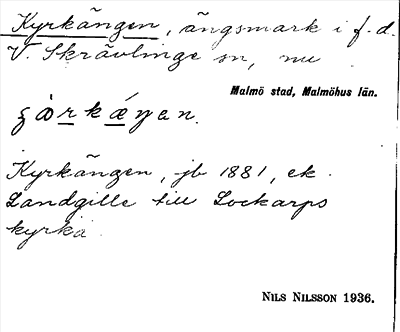 Kyrkängen, ängsmark i f.d.
V. Skrävlinge sn, nu
Malmö stad, Malmöhus län.
Kyrkängen, jb 1881, ek.
Landgille till Lockarps
kyrka
NILS NILSSON 1936.